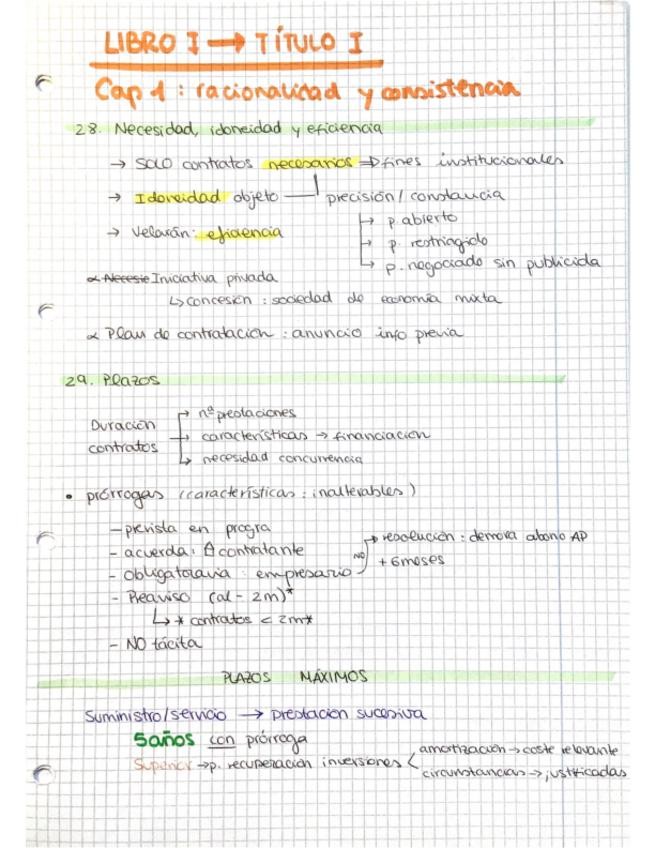 LIBRO I → TÍTULO I
Cap 1 : racionalidad y consistencia
28. Necesidad, idoneidad y eficiencia
→ Solo contratos necesarios ⇒ fines institucionales
→ Idoneidad objeto — precisión / constancia
→ Velarán: eficiencia
↳ p. abierto
↳ p. restringido
↳ p. negociado sin publicida
∝ Necesie Iniciativa privada
↳ concesión : sociedad de economía mixta
∝ Plan de contratación : anuncio info previa
29. Plazos
Duración contratos
→ nº prestaciones
→ características → financiación
↳ necesidad concurrencia
• prórrogas (características : inalterables)
- prevista en progra
- acuerda: Ó contratante
- obligatoriavia : empresario
NO → resolución : demora abono AP
+ 6 meses
- Preaviso (al - 2m)*
↳ * contratos < 2m*
- NO tácita
PLAZOS MÁXIMOS
Suministro/servicio → prestación sucesiva
5 años con prórroga
Superior → p. recuperación inversiones <
amortización → coste relevante
circunstancias → justificadas